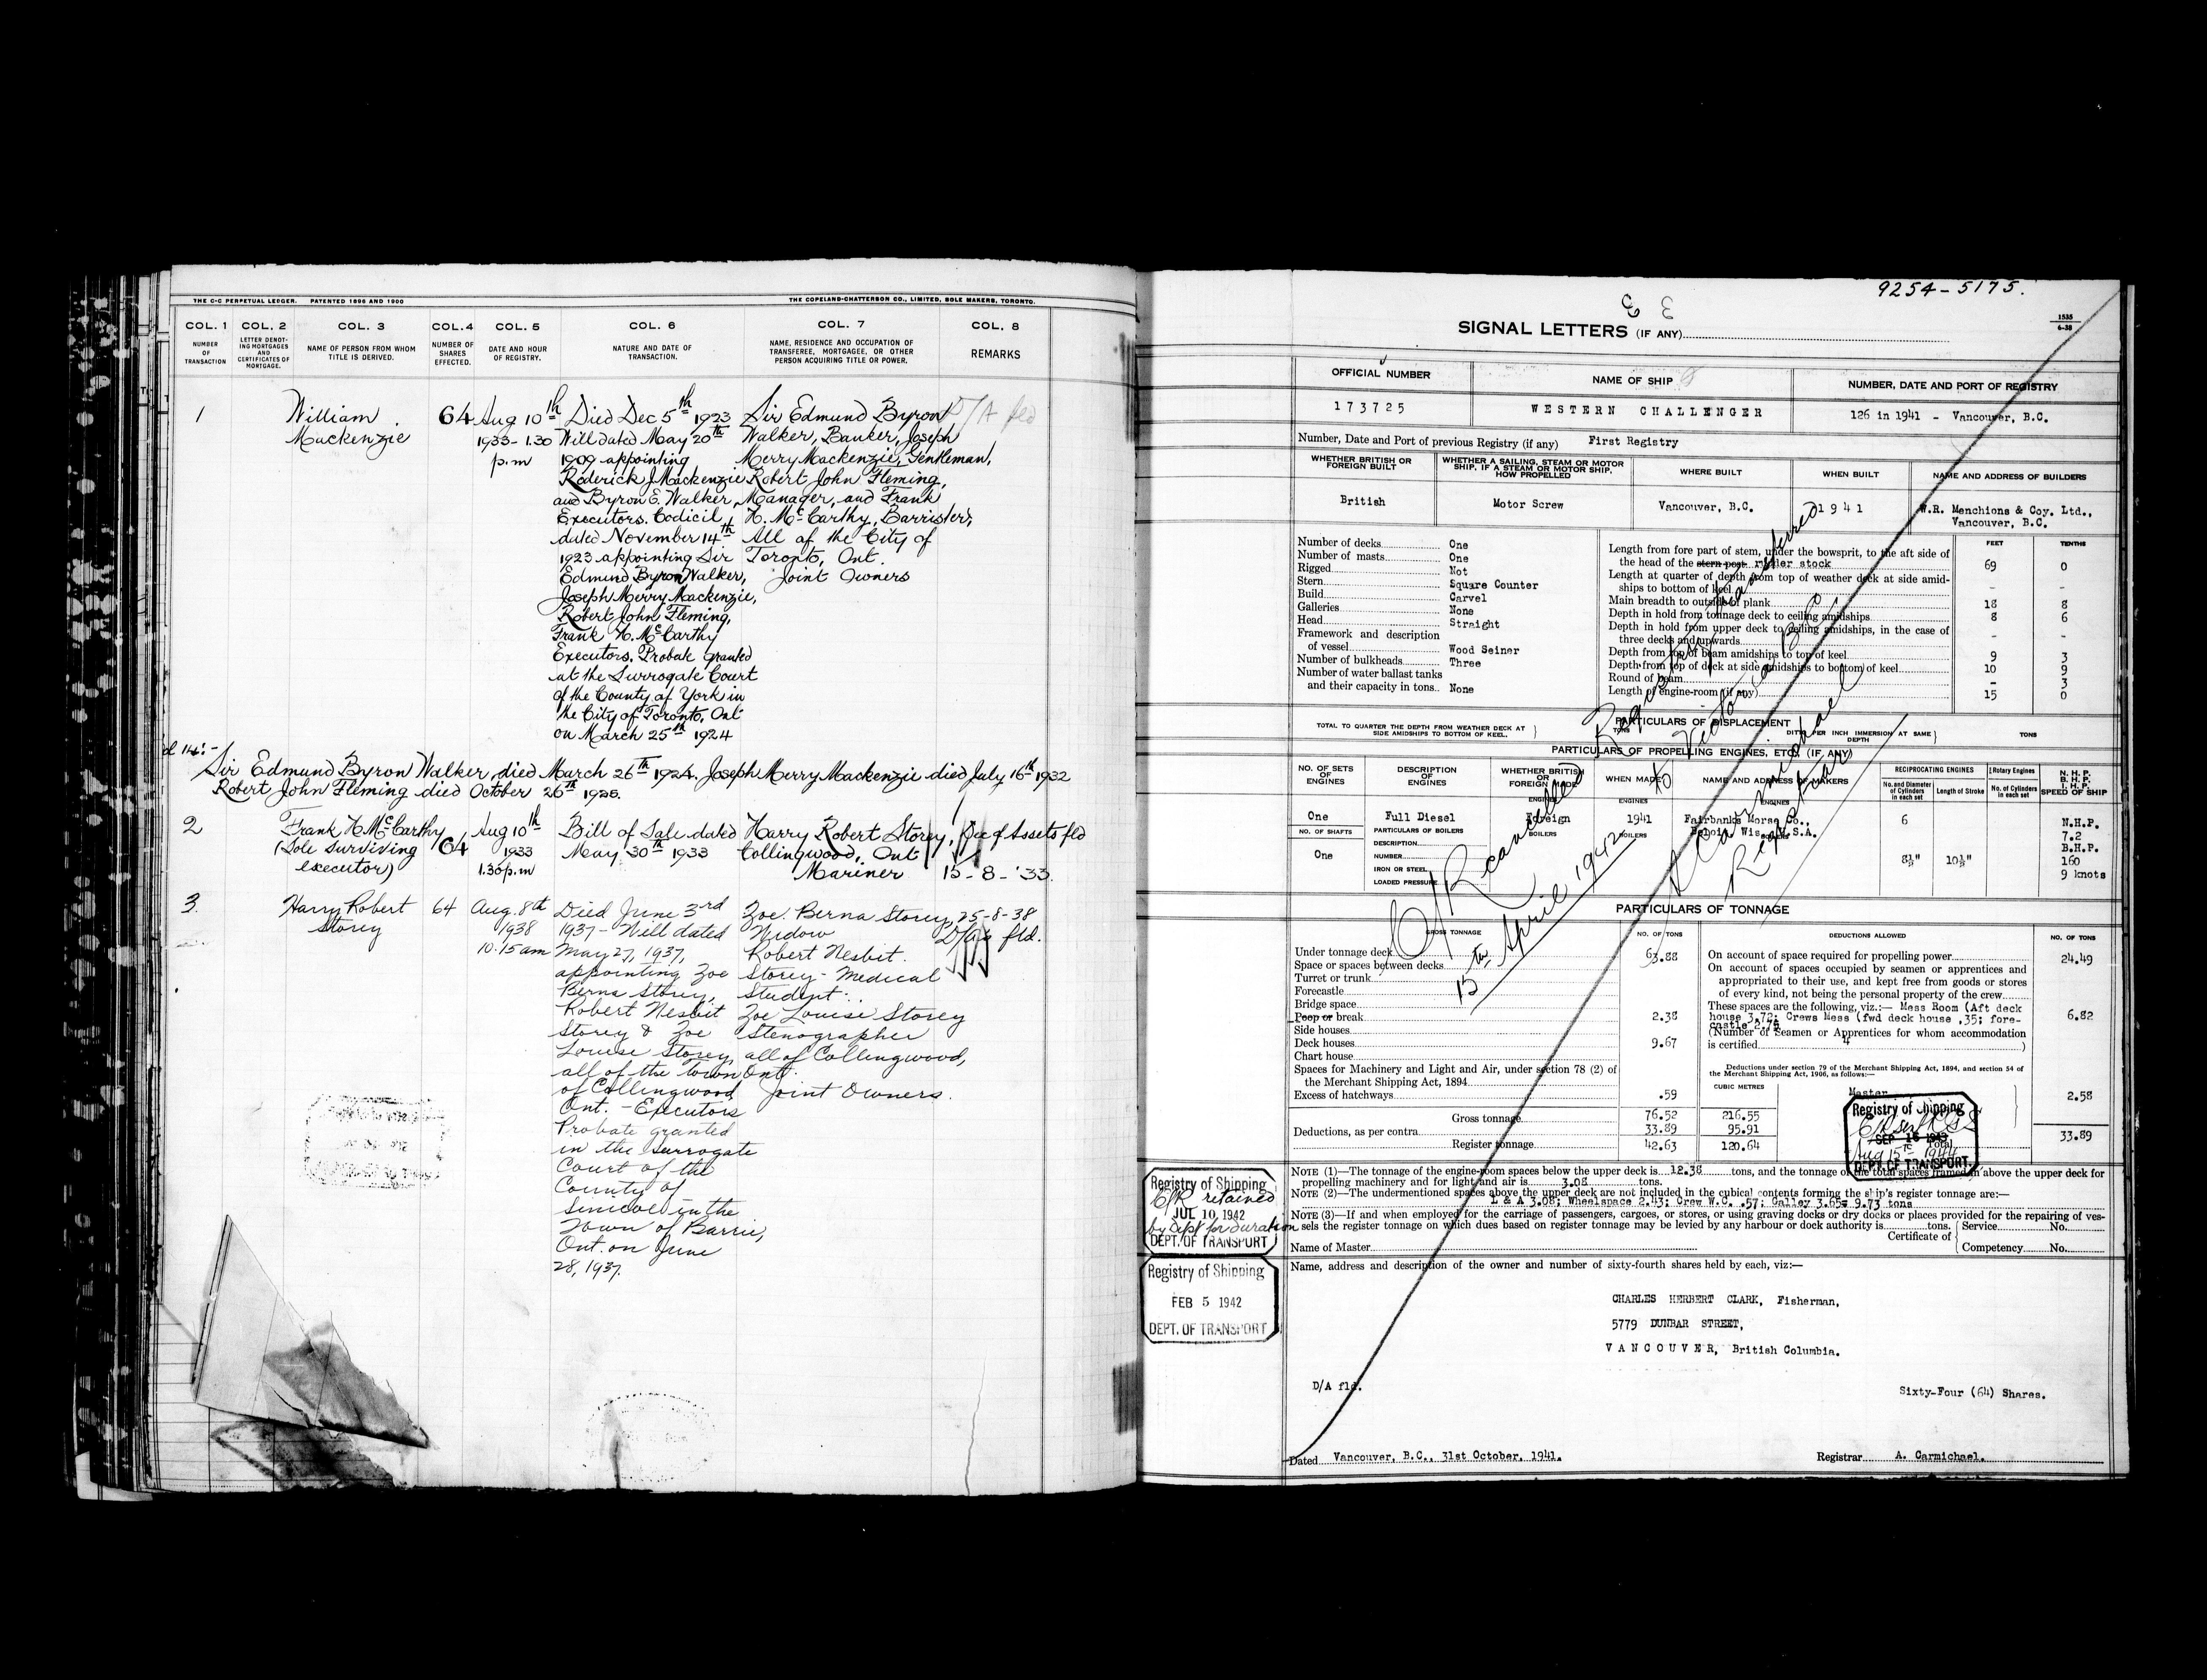 THE C-C PERPETUAL LEDGER. PATENTED 1896 AND 1900
THE COPELAND-CHATTERSON CO., LIMITED, SOLE MAKERS, TORONTO.
COL. 1 COL. 2 COL. 3 COL. 4 COL. 5 COL. 6 COL. 7 COL. 8
NUMBER OF TRANSACTION
LETTER DENOTING MORTGAGES AND CERTIFICATES OF MORTGAGE.
NAME OF PERSON FROM WHOM TITLE IS DERIVED.
NUMBER OF SHARES EFFECTED.
DATE AND HOUR OF REGISTRY.
NATURE AND DATE OF TRANSACTION.
NAME, RESIDENCE AND OCCUPATION OF TRANSFEREE, MORTGAGEE, OR OTHER PERSON ACQUIRING TITLE OR POWER.
REMARKS
1
William
Mackenzie
64
Aug 10th
1933 - 1.30
p.m
Died Dec 5th 1923
Will dated May 20th
1909 appointing
Roderick J Mackenzie
and Byron E. Walker
Executors. Codicil
dated November 14th
1923 appointing Sir
Edmund Byron Walker,
Joseph Merry Mackenzie,
Robert John Fleming,
Frank H. McCarthy
Executors. Probate granted
at the Surrogate Court
of the County of York in
the City of Toronto, Ont
on March 25th 1924
Sir Edmund Byron
Walker, Banker, Joseph
Merry Mackenzie, Gentleman,
Robert John Fleming,
Manager, and Frank
H. McCarthy, Barrister,
All of the City of
Toronto, Ont.
Joint Owners
D/A fld
Sir Edmund Byron Walker died March 26th 1924. Joseph Merry Mackenzie died July 16th 1932
Robert John Fleming died October 26th 1925.
2
Frank H McCarthy
(Sole surviving
executor)
64
Aug 10th
1933
1.30 p.m
Bill of Sale dated
May 30th 1933
Harry Robert Storey,
Collingwood, Ont
Mariner
Dec of Assets fld
15-8-'33.
3.
Harry Robert
Storey
64
Aug. 8th
1938
10.15 am
Died June 3rd
1937 - Will dated
May 27, 1937,
appointing Zoe
Berna Storey,
Robert Nesbit
Storey & Zoe
Louise Storey,
all of the town
of Collingwood,
Ont. - Executors
Probate granted
in the Surrogate
Court of the
County of
Simcoe in the
Town of Barrie,
Ont. on June
28, 1937.
Zoe Berna Storey,
Widow
Robert Nesbit
Storey - Medical
Student.
Zoe Louise Storey
Stenographer
all of Collingwood,
Ont.
Joint Owners.
25-8-38
D/As fld.
9254-5175.
1535
6-38
SIGNAL LETTERS (IF ANY)
OFFICIAL NUMBER
NAME OF SHIP
NUMBER, DATE AND PORT OF REGISTRY
173725
WESTERN CHALLENGER
126 in 1941 - Vancouver, B.C.
Number, Date and Port of previous Registry (if any) First Registry
WHETHER BRITISH OR FOREIGN BUILT
WHETHER A SAILING, STEAM OR MOTOR SHIP. IF A STEAM OR MOTOR SHIP, HOW PROPELLED
WHERE BUILT
WHEN BUILT
NAME AND ADDRESS OF BUILDERS
British
Motor Screw
Vancouver, B.C.
1941
W.R. Menchions & Coy. Ltd.,
Vancouver, B.C.
Number of decks One
Number of masts One
Rigged Not
Stern Square Counter
Build Carvel
Galleries None
Head Straight
Framework and description
of vessel Wood Seiner
Number of bulkheads Three
Number of water ballast tanks
and their capacity in tons.. None
FEET TENTHS
Length from fore part of stem, under the bowsprit, to the aft side of
the head of the stern post rudder stock 69 0
Length at quarter of depth from top of weather deck at side amid-
ships to bottom of keel - -
Main breadth to outside of plank 18 8
Depth in hold from tonnage deck to ceiling amidships 8 6
Depth in hold from upper deck to ceiling amidships, in the case of
three decks and upwards - -
Depth from top of beam amidships to top of keel 9 3
Depth from top of deck at side amidships to bottom of keel 10 9
Round of beam - 3
Length of engine-room (if any) 15 0
PARTICULARS OF DISPLACEMENT
TOTAL TO QUARTER THE DEPTH FROM WEATHER DECK AT SIDE AMIDSHIPS TO BOTTOM OF KEEL. TONS
DITTO PER INCH IMMERSION AT SAME DEPTH TONS
PARTICULARS OF PROPELLING ENGINES, ETC. (IF ANY)
NO. OF SETS OF ENGINES
DESCRIPTION OF ENGINES
WHETHER BRITISH OR FOREIGN MADE
WHEN MADE
NAME AND ADDRESS OF MAKERS
RECIPROCATING ENGINES
No. and Diameter of Cylinders in each set
Length of Stroke
Rotary Engines
No. of Cylinders in each set
N.H.P.
B.H.P.
I.H.P.
SPEED OF SHIP
ENGINES ENGINES ENGINES
One
Full Diesel
Foreign
1941
Fairbanks Morse Co.,
Beloit, Wis., U.S.A.
6
NO. OF SHAFTS
PARTICULARS OF BOILERS
BOILERS BOILERS
DESCRIPTION
NUMBER
IRON OR STEEL
LOADED PRESSURE
One
10½"
N.H.P.
7.2
B.H.P.
160
9 knots
PARTICULARS OF TONNAGE
GROSS TONNAGE
NO. OF TONS
DEDUCTIONS ALLOWED
NO. OF TONS
Under tonnage deck 63.88
Space or spaces between decks
Turret or trunk
Forecastle
Bridge space
Poop or break 2.38
Side houses
Deck houses 9.67
Chart house
Spaces for Machinery and Light and Air, under section 78 (2) of
the Merchant Shipping Act, 1894
Excess of hatchways .59
Gross tonnage 76.52 216.55
Deductions, as per contra 33.89 95.91
Register tonnage 42.63 120.64
CUBIC METRES
On account of space required for propelling power 24.49
On account of spaces occupied by seamen or apprentices and
appropriated to their use, and kept free from goods or stores
of every kind, not being the personal property of the crew
These spaces are the following, viz.:— Mess Room (Aft deck
house 3.72; Crews Mess (fwd deck house .35; fore- 6.82
castle 2.75
(Number of Seamen or Apprentices for whom accommodation
is certified 4 )
Deductions under section 79 of the Merchant Shipping Act, 1894, and section 54 of
the Merchant Shipping Act, 1906, as follows:—
Master 2.58
Total 33.89
Registry of Shipping
SEP 16 1943
Aug 15th 1944
DEPT. OF TRANSPORT
C/R cancelled
15th April 1942
Registry transferred
to Victoria B.C.
A Carmichael
Registrar
NOTE (1)—The tonnage of the engine-room spaces below the upper deck is 12.38 tons, and the tonnage of the total spaces framed in above the upper deck for
propelling machinery and for light and air is 3.08 tons.
NOTE (2)—The undermentioned spaces above the upper deck are not included in the cubical contents forming the ship's register tonnage are:—
L & A 3.08; Wheelspace 2.43; Crew W.C. .57; Galley 3.65= 9.73 tons
NOTE (3)—If and when employed for the carriage of passengers, cargoes, or stores, or using graving docks or dry docks or places provided for the repairing of ves-
sels the register tonnage on which dues based on register tonnage may be levied by any harbour or dock authority is tons.
Certificate of Service No.
Competency No.
Name of Master
Registry of Shipping
C/R retained
JUL 10 1942
by Dept for duration
DEPT. OF TRANSPORT
Registry of Shipping
FEB 5 1942
DEPT. OF TRANSPORT
Name, address and description of the owner and number of sixty-fourth shares held by each, viz:—
CHARLES HERBERT CLARK, Fisherman,
5779 DUNBAR STREET,
VANCOUVER, British Columbia.
D/A fld.
Sixty-Four (64) Shares.
Dated Vancouver, B.C., 31st October, 1941.
Registrar A. Carmichael.